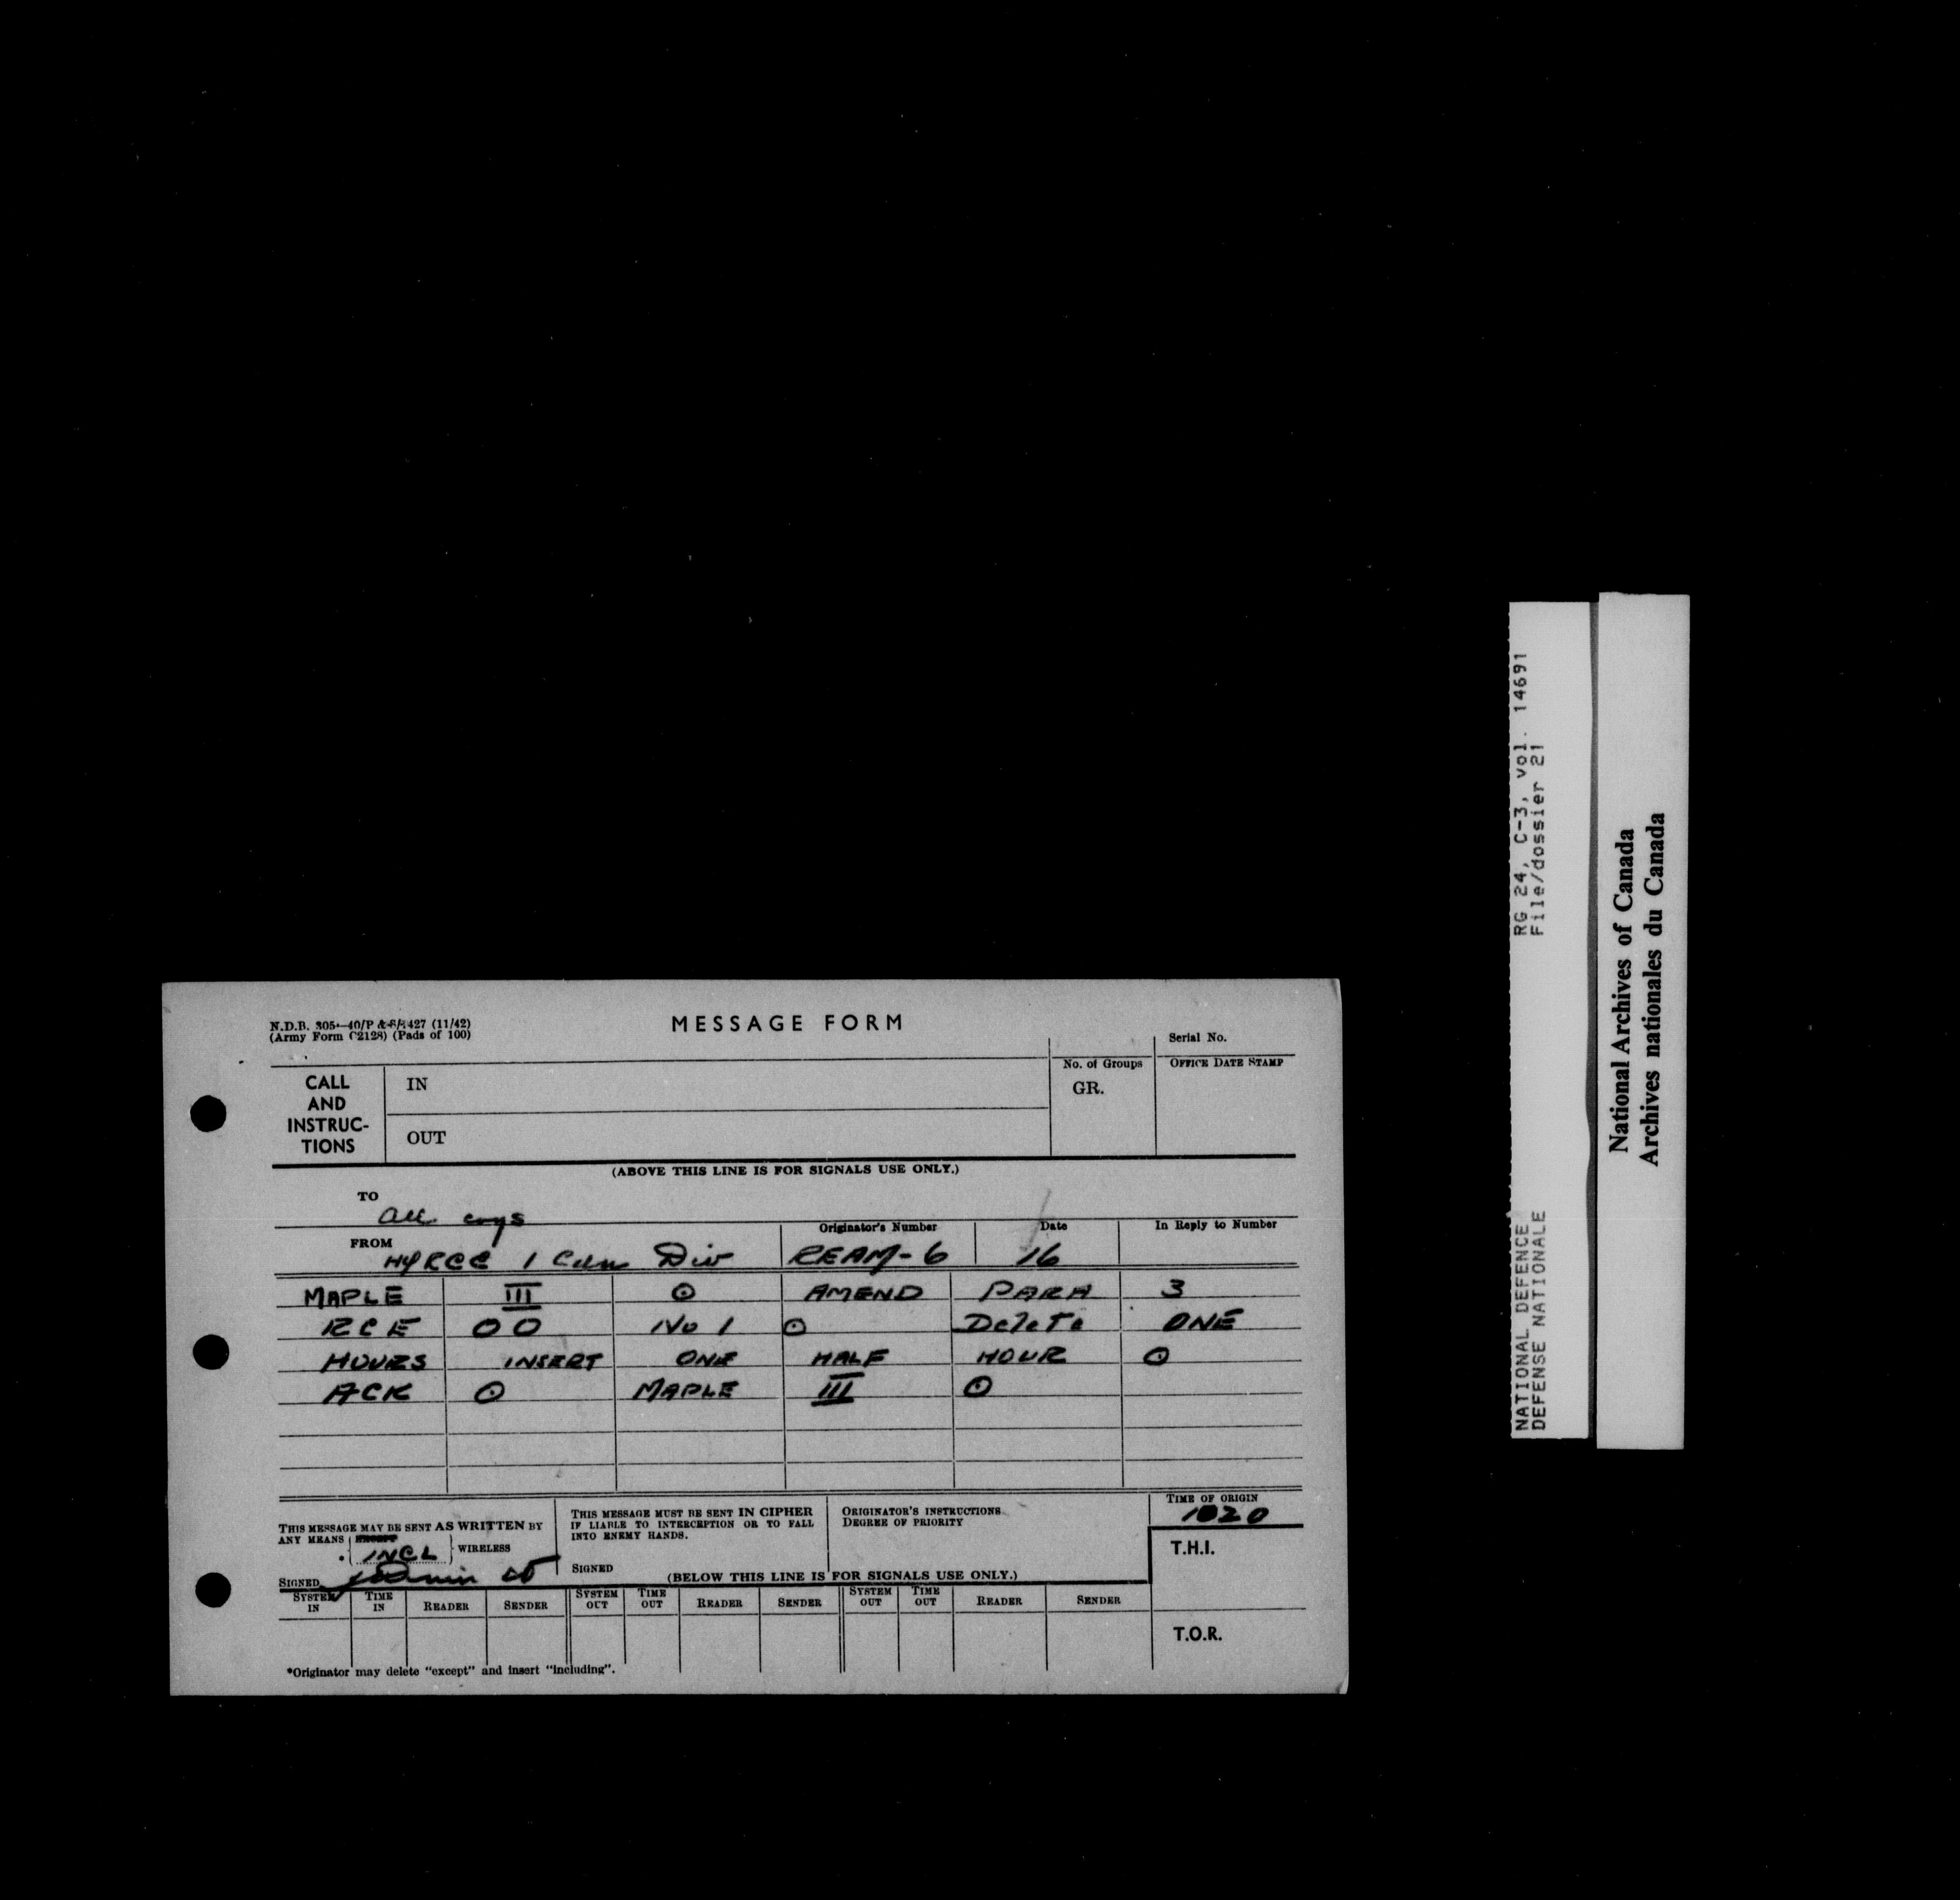 N.D.B. 305 40/P & S/ 427 (11/42)
(Army Form C2128) (Pads of 100)
MESSAGE FORM
Serial No.
CALL AND INSTRUC-TIONS
IN
No. of Groups
GR.
OFFICE DATE STAMP
OUT
(ABOVE THIS LINE IS FOR SIGNALS USE ONLY.)
TO
All coys
Originator's Number
Date
In Reply to Number
FROM
HQ RCE 1 Cdn Div REAM-6 16
MAPLE III ⊙ AMEND PARA 3
RCE OO No 1 ⊙ Delete ONE
HOURS INSERT ONE HALF HOUR ⊙
ACK ⊙ MAPLE III ⊙
THIS MESSAGE MAY BE SENT AS WRITTEN BY
ANY MEANS EXCEPT
INCL
WIRELESS
SIGNED
THIS MESSAGE MUST BE SENT IN CIPHER
IF LIABLE TO INTERCEPTION OR TO FALL
INTO ENEMY HANDS.
SIGNED
ORIGINATOR'S INSTRUCTIONS
DEGREE OF PRIORITY
TIME OF ORIGIN
1020
T.H.I.
(BELOW THIS LINE IS FOR SIGNALS USE ONLY.)
SYSTEM IN TIME IN READER SENDER SYSTEM OUT TIME OUT READER SENDER SYSTEM OUT TIME OUT READER SENDER
T.O.R.
*Originator may delete "except" and insert "including".
NATIONAL DEFENCE RG 24, C-3, vol. 14691
DEFENSE NATIONALE File/dossier 21
National Archives of Canada
Archives nationales du Canada